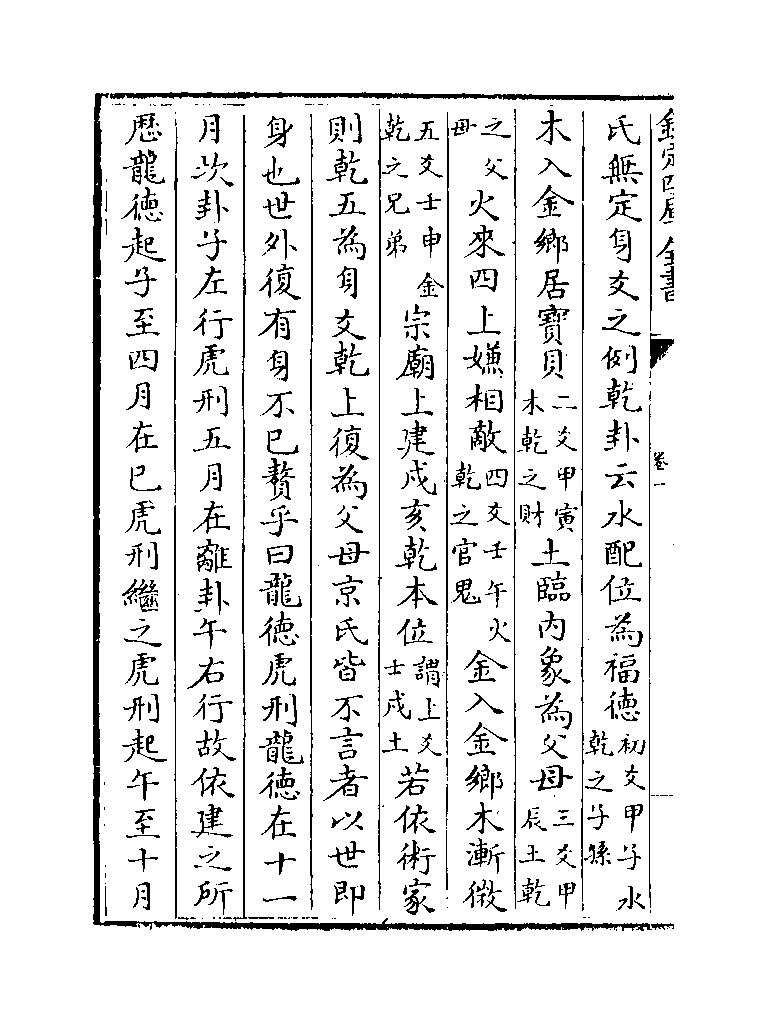 欽定四庫全書
卷一
氏無定身爻之例乾卦云水配位為福德初爻甲子水乾之子孫
木入金鄉居寶貝二爻甲寅木乾之財土臨内象為父母三爻甲辰土乾
之父母火來四上嫌相敵四爻壬午火乾之官鬼金入金鄉木漸微
五爻壬申金乾之兄弟宗廟上建戌亥乾本位謂上爻士戌土若依術家
則乾五為身爻乾上復為父母京氏皆不言者以世即
身也世外復有身不已贅乎曰龍德虎刑龍德在十一
月次卦子左行虎刑五月在離卦午右行故依建之所
歴龍德起子至四月在巳虎刑繼之虎刑起午至十月